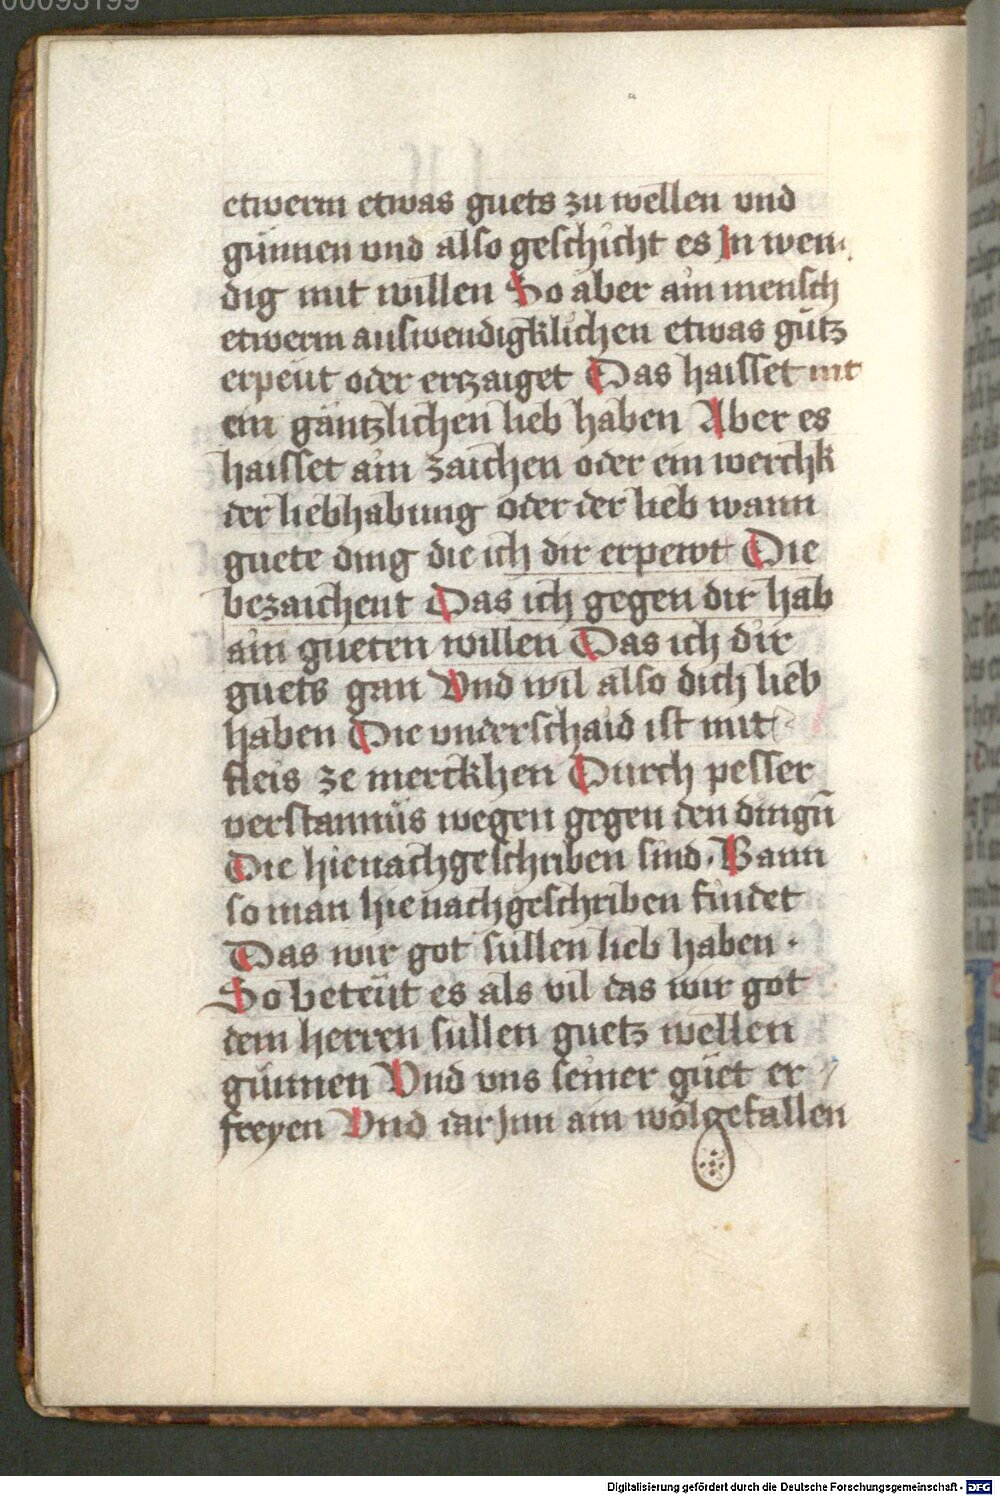 00093199
etwerm etwas guets zu wellen vnd
günnen vnd also geschicht es Jn wen
dig mit willen So aber ain mensch
etwerm auswendigklichen etwas gütz
erpeüt oder erzaiget Das haisset nit
ein gäntzlichen lieb haben Aber es
haisset ain zaichen oder ein werckh
der liebhabung oder der lieb wann
guete ding die ich dir erpewt Die
bezaichent Das ich gegen dir hab
ain gueten willen Das ich dir
guets gan Vnd wil also dich lieb
haben Die vnderschaid ist mit
fleis ze merckhen Durch pesser
verstannüs wegen gegen den dingn̄
Die hienachgeschriben sind · Wann
so man hie nachgeschriben findet
Das wir got süllen lieb haben ·
So beteüt es als vil das wir got
dem herren süllen guetz wellen
günnen Vnd vns seiner güet er
freyen Vnd dar Jnn ain wolgefallen
Digitalisierung gefördert durch die Deutsche Forschungsgemeinschaft - DFG